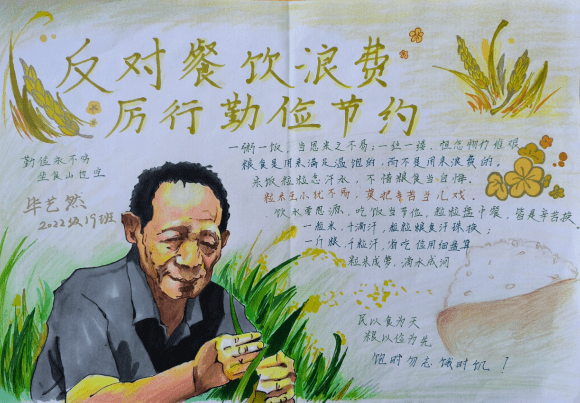 反对餐饮浪费
厉行勤俭节约
勤俭永不穷
坐食山也空
毕艺然
2022级19班
一粥一饭，当思来之不易；一丝一缕，恒念物力维艰
粮食是用来满足温饱的，而不是用来浪费的。
米饭粒粒念汗水，不惜粮食当自悔。
粒米虽小犹不易，莫把辛苦当儿戏。
饮水要思源，吃饭当节俭，粒粒盘中餐，皆是辛苦换。
一粒米，千滴汗，粒粒粮食汗珠换；
一斤粮，千粒汗，省吃俭用细盘算
粒米成箩，滴水成河
民以食为天
粮以俭为先
饱时勿忘饿时饥！